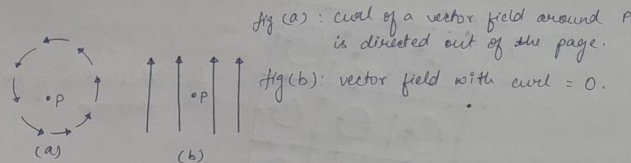 fig (a) : curl of a vector field around P
is directed out of the page.
fig (b) : vector field with curl = 0.
P
P
(a)
(b)